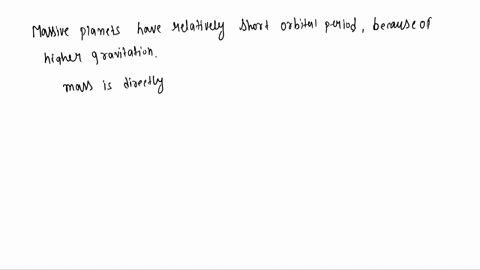 Massive planets have relatively short orbital period, because of
higher gravitation.
mass is directly